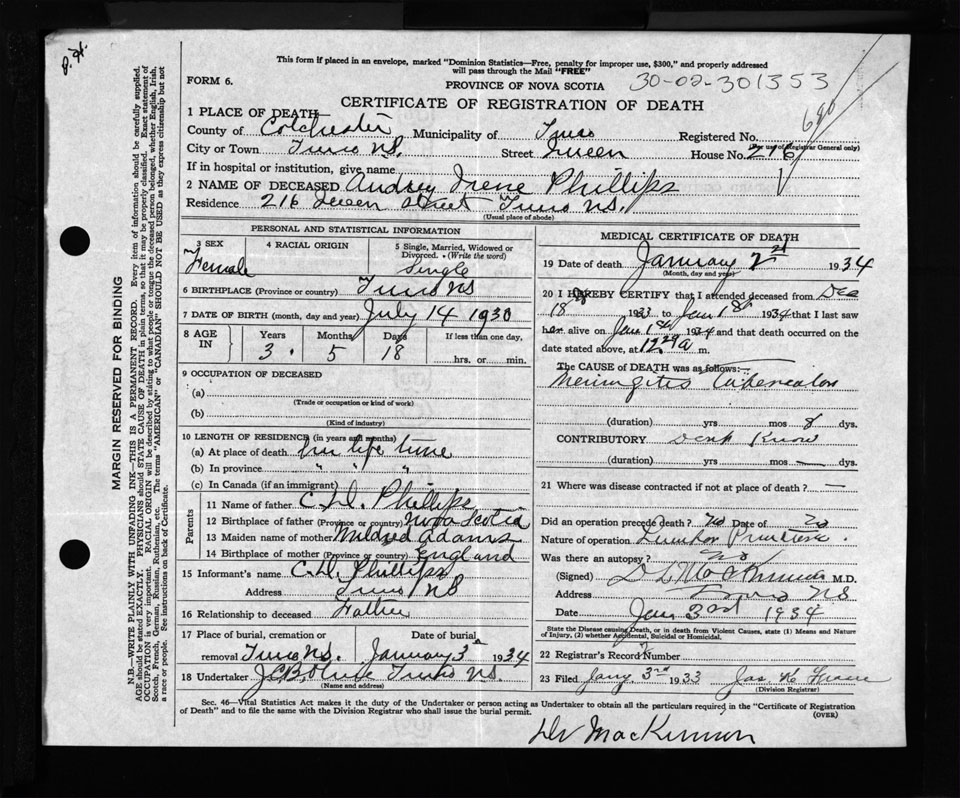 P.H.
This form if placed in an envelope, marked "Dominion Statistics—Free, penalty for improper use, $300," and properly addressed
will pass through the Mail "FREE"
30-02-301353
FORM 6.
PROVINCE OF NOVA SCOTIA
CERTIFICATE OF REGISTRATION OF DEATH
690
1 PLACE OF DEATH
County of Colchester Municipality of Truro Registered No.
(For use of Registrar General only)
City or Town Truro N.S. Street Queen House No. 216
If in hospital or institution, give name
2 NAME OF DECEASED Audrey Irene Phillips
Residence 216 Queen Street Truro N.S.
(Usual place of abode)
PERSONAL AND STATISTICAL INFORMATION
3 SEX Female
4 RACIAL ORIGIN
5 Single, Married, Widowed or
Divorced. (Write the word)
Single
6 BIRTHPLACE (Province or country) Truro NS
7 DATE OF BIRTH (month, day and year) July 14 1930
8 AGE IN Years Months Days If less than one day,
3 5 18 hrs. or min.
9 OCCUPATION OF DECEASED
(a)
(Trade or occupation or kind of work)
(b)
(Kind of industry)
10 LENGTH OF RESIDENCE (in years and months)
(a) At place of death her life time
(b) In province " " "
(c) In Canada (if an immigrant)
Parents
11 Name of father C. H. Phillips
12 Birthplace of father (Province or country) Nova Scotia
13 Maiden name of mother Mildred Adams
14 Birthplace of mother (Province or country) England
15 Informant's name C. H. Phillips
Address Truro NS
16 Relationship to deceased Father
17 Place of burial, cremation or Date of burial
removal Truro N.S. January 3 1934
18 Undertaker Truro N.S.
(Name and address)
MEDICAL CERTIFICATE OF DEATH
19 Date of death January 2nd 1934
(Month, day and year)
20 I HEREBY CERTIFY that I attended deceased from Dec
18 1933 to Jan 1st 1934 that I last saw
her alive on Jan 1st 1934 and that death occurred on
date stated above, at m.
The CAUSE of DEATH was as follows:—
Meningitis Tubercular
(duration) yrs mos 8 dys.
CONTRIBUTORY Dont Know
(duration) yrs mos — dys.
21 Where was disease contracted if not at place of death? —
Did an operation precede death? no Date of no
Nature of operation Lumbar Puncture.
Was there an autopsy? no
(Signed) D L MacKinnon M.D.
Address Truro NS
Date Jan 3rd 1934
State the Disease causing Death, or in death from Violent Causes, state (1) Means and Nature
of Injury, (2) whether Accidental, Suicidal or Homicidal.
22 Registrar's Record Number
23 Filed Jany. 3rd 1933
(Division Registrar)
Sec. 46—Vital Statistics Act makes it the duty of the Undertaker or person acting as Undertaker to obtain all the particulars required in the "Certificate of Registration
of Death" and to file the same with the Division Registrar who shall issue the burial permit. (OVER)
Dr MacKinnon
MARGIN RESERVED FOR BINDING
N.B.—WRITE PLAINLY WITH UNFADING INK—THIS IS A PERMANENT RECORD. Every item of information should be carefully supplied.
AGE should be stated EXACTLY. PHYSICIANS should STATE CAUSE OF DEATH in plain terms, so that it may be properly classified. Exact statement of
OCCUPATION is very important. RACIAL ORIGIN will be described by stating to what people or tongue the deceased person belonged, whether English, Irish,
Scotch, French, German, Russian, Ruthenian, etc. The terms "AMERICAN" or "CANADIAN" SHOULD NOT BE USED as they express citizenship but not
a race or people. See instructions on back of Certificate.